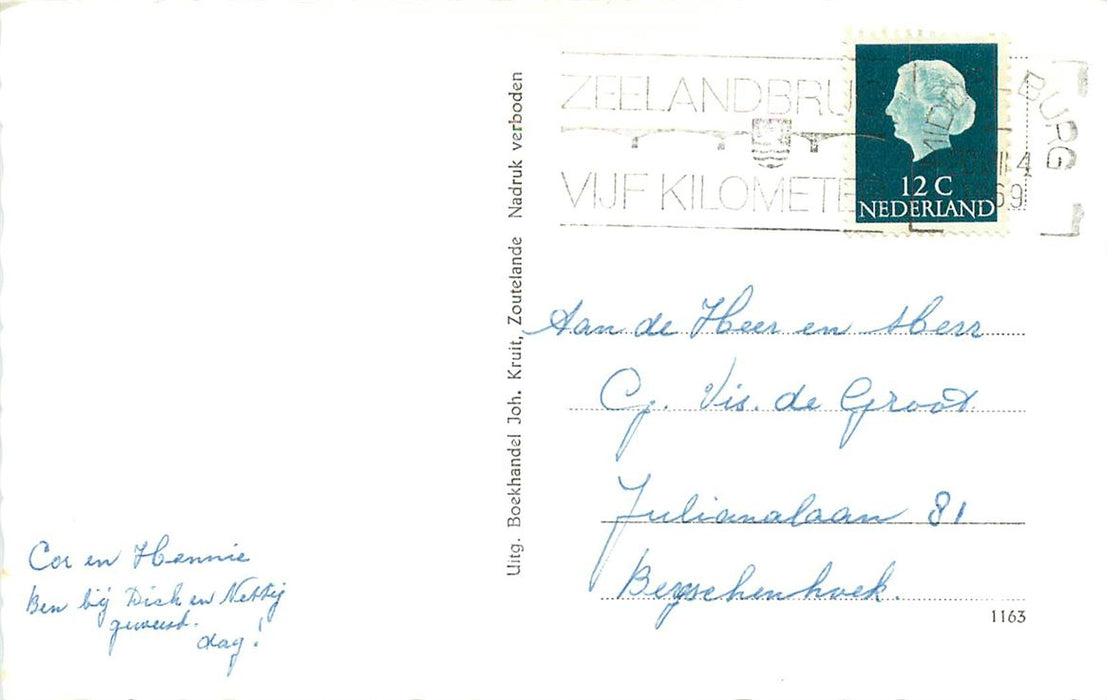 ZEELANDBRU
VIJF KILOMETE
BURG
4
69
12 C
NEDERLAND
Uitg. Boekhandel Joh. Kruit, Zoutelande Nadruk verboden
Aan de Heer en
Cy. Vis. de Groot
Julianalaan 81
Bergschenhoek.
1163
Cor en Hennie
Ben bij Dick en
geweest.
dag!